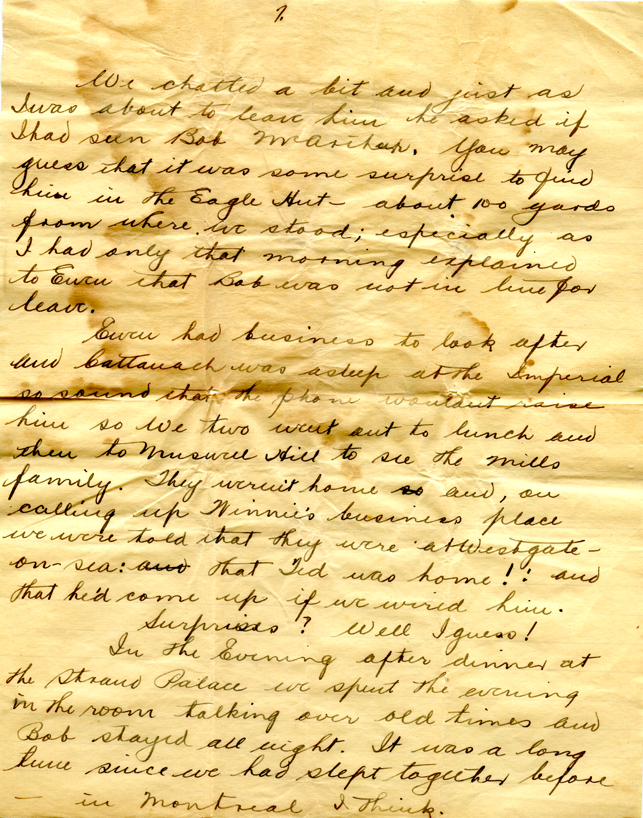 7.
We chatted a bit and just as
I was about to leave him he asked if
I had seen Bob McArthur. You may
guess that it was some surprise to find
him in the Eagle Hut - about 100 yards
from where we stood; especially as
I had only that morning explained
to Ewen that Bob was not in line for
leave.
Ewen had business to look after
and Cattanach was asleep at the Imperial
so sound that the phone wouldn't raise
him so we two went out to lunch and
then to Muswell Hill to see the Mills
family. They weren't home so and, on
calling up Winnie's business place
we were told that they were at Westgate-
on-sea: and that Ted was home!! and
that he'd come up if we wired him.
Surprises? Well I guess!
In the Evening after dinner at
the Strand Palace we spent the evening
in the room talking over old times and
Bob stayed all night. It was a long
time since we had slept together before
— in Montreal I think.